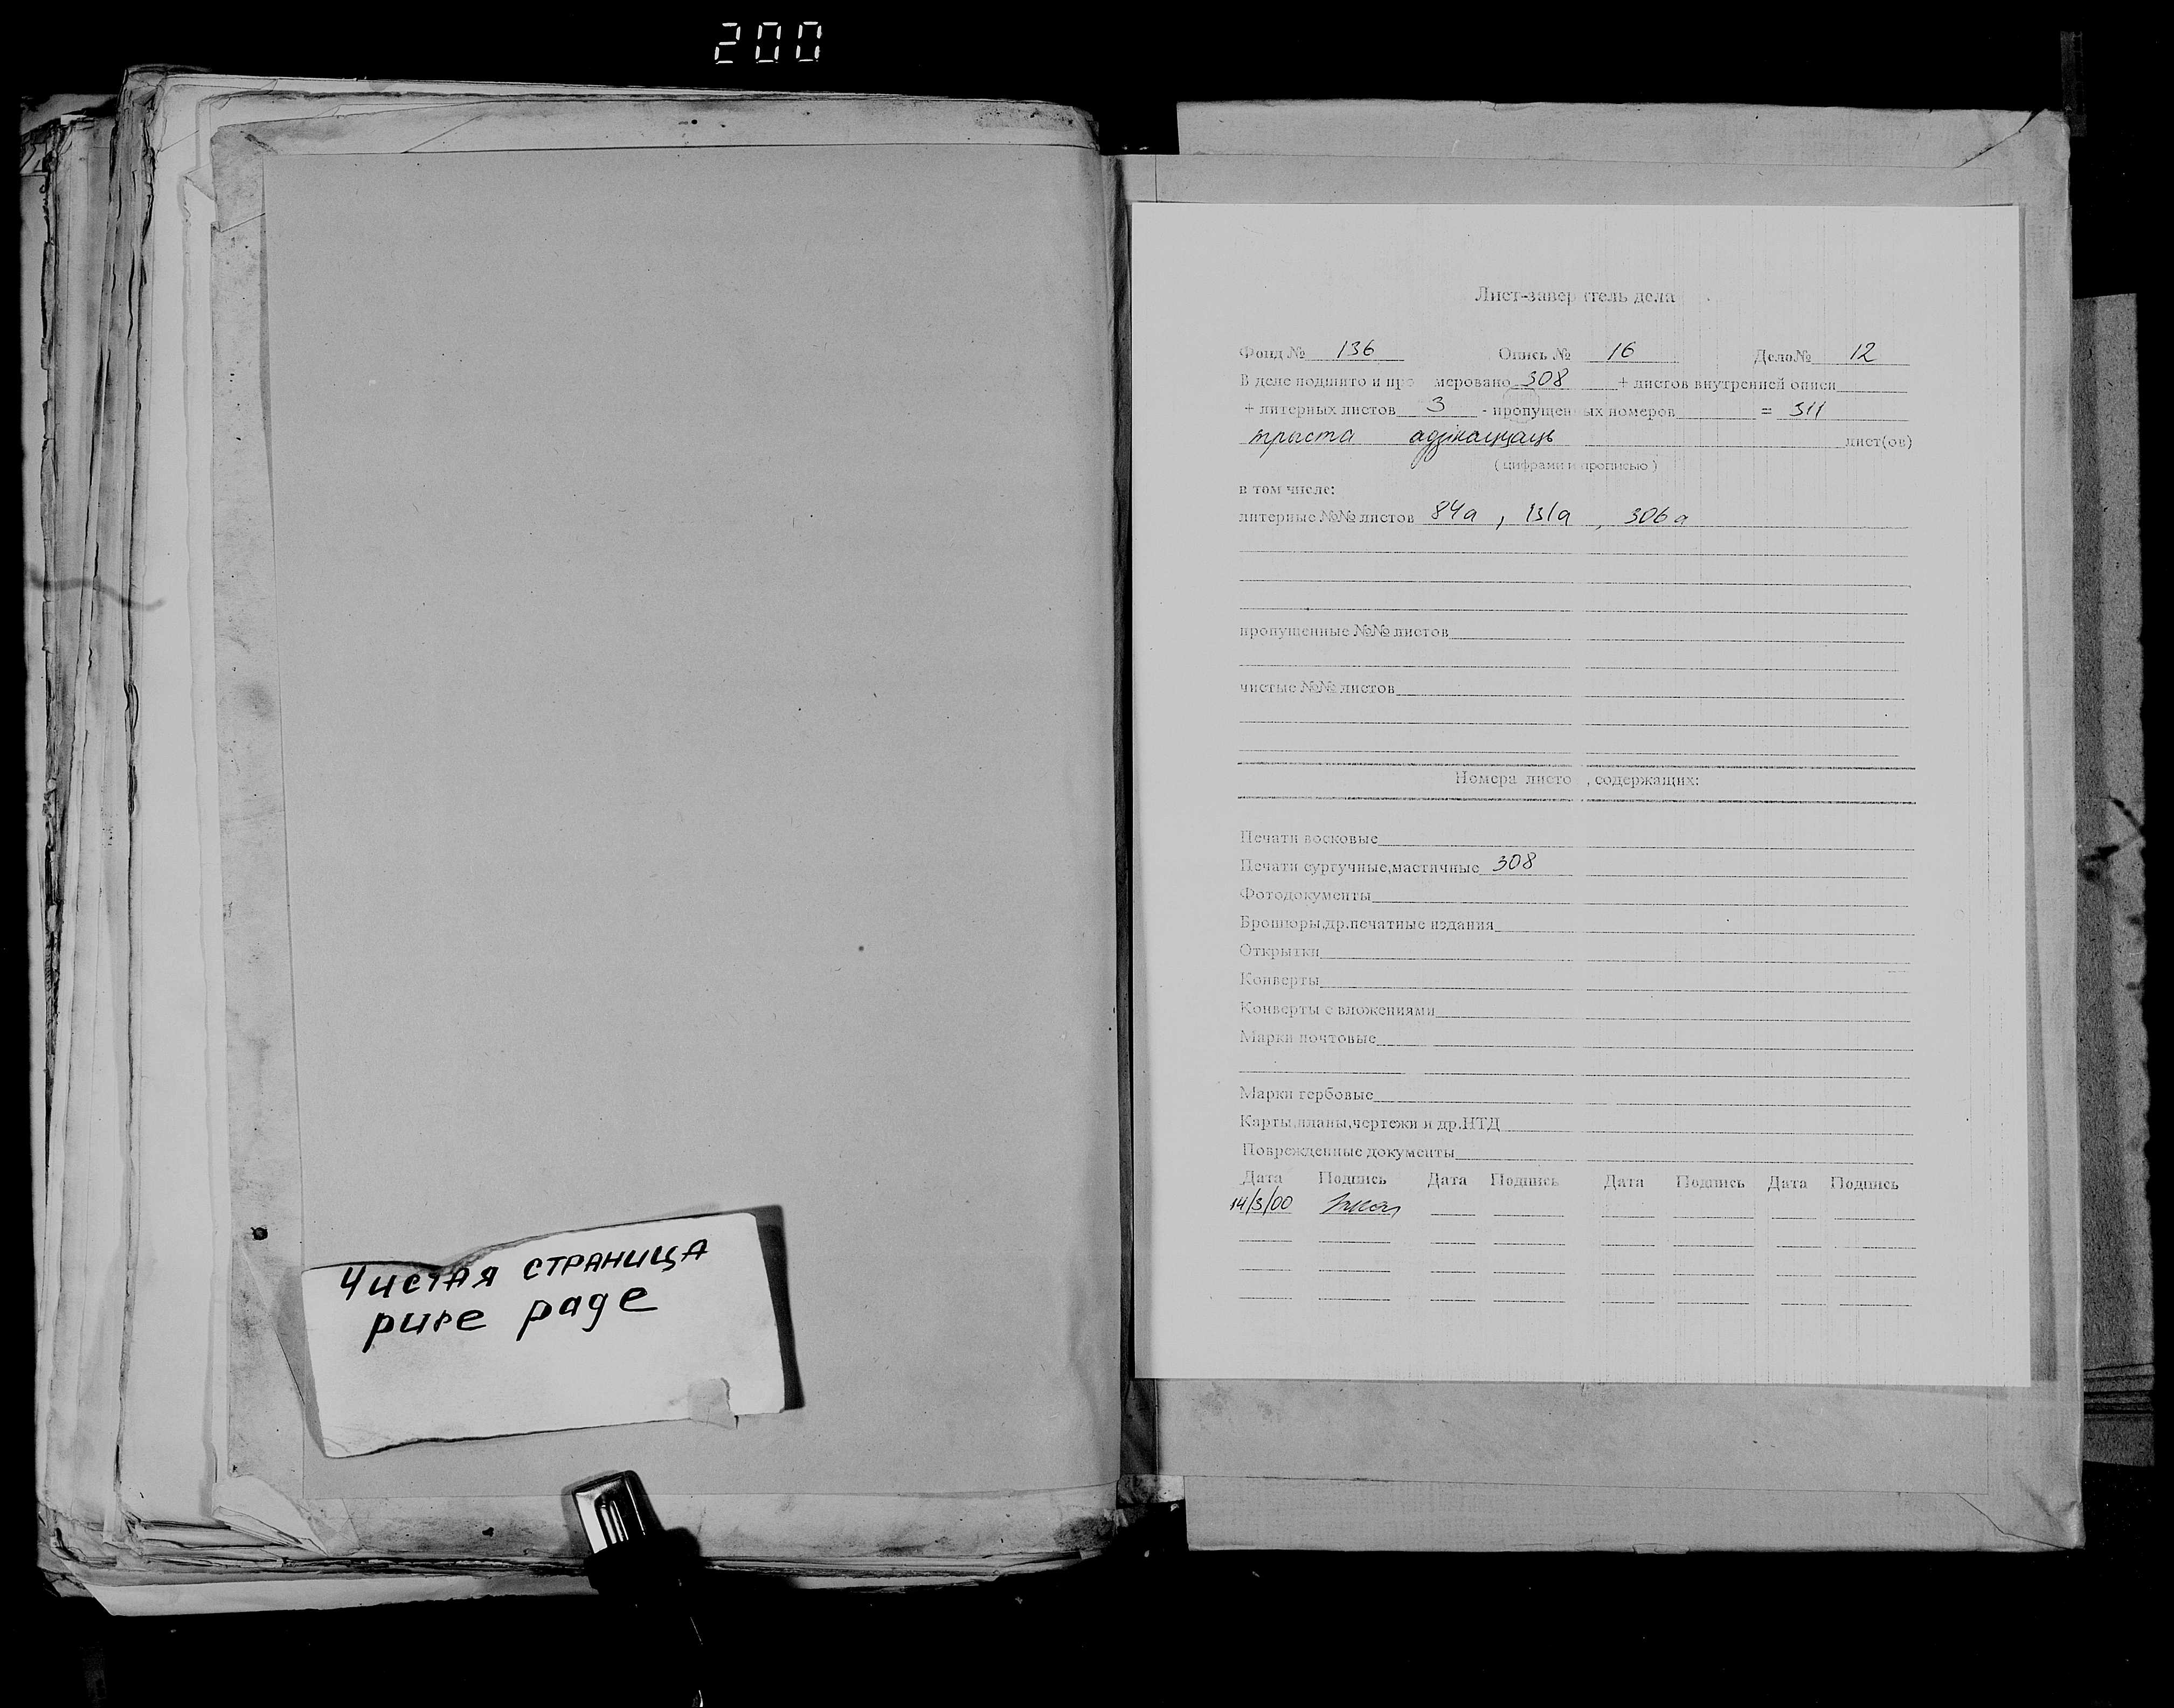 200
Чистая страница
pure page
Лист-завер тель дела
Фонд № 136 Опись № 16 Дело№ 12
В деле подшито и про меровано 308 + листов внутренней описи
+ литерных листов 3 - пропущен ых номеров = 311
трыста адзінаццаць лист(ов)
( цифрами и прописью )
в том числе:
литерные №№ листов 84а , 131а , 306а
пропущенные №№ листов
чистые №№ листов
Номера листо , содержащих:
Печати восковые
Печати сургучные,мастичные 308
Фотодокументы
Брошюры,др.печатные издания
Открытки
Конверты
Конверты с вложениями
Марки почтовые
Марки гербовые
Карты,планы,чертежи и др.НТД
Поврежденные документы
Дата Подпись Дата Подпись Дата Подпись Дата Подпись
14/3/00